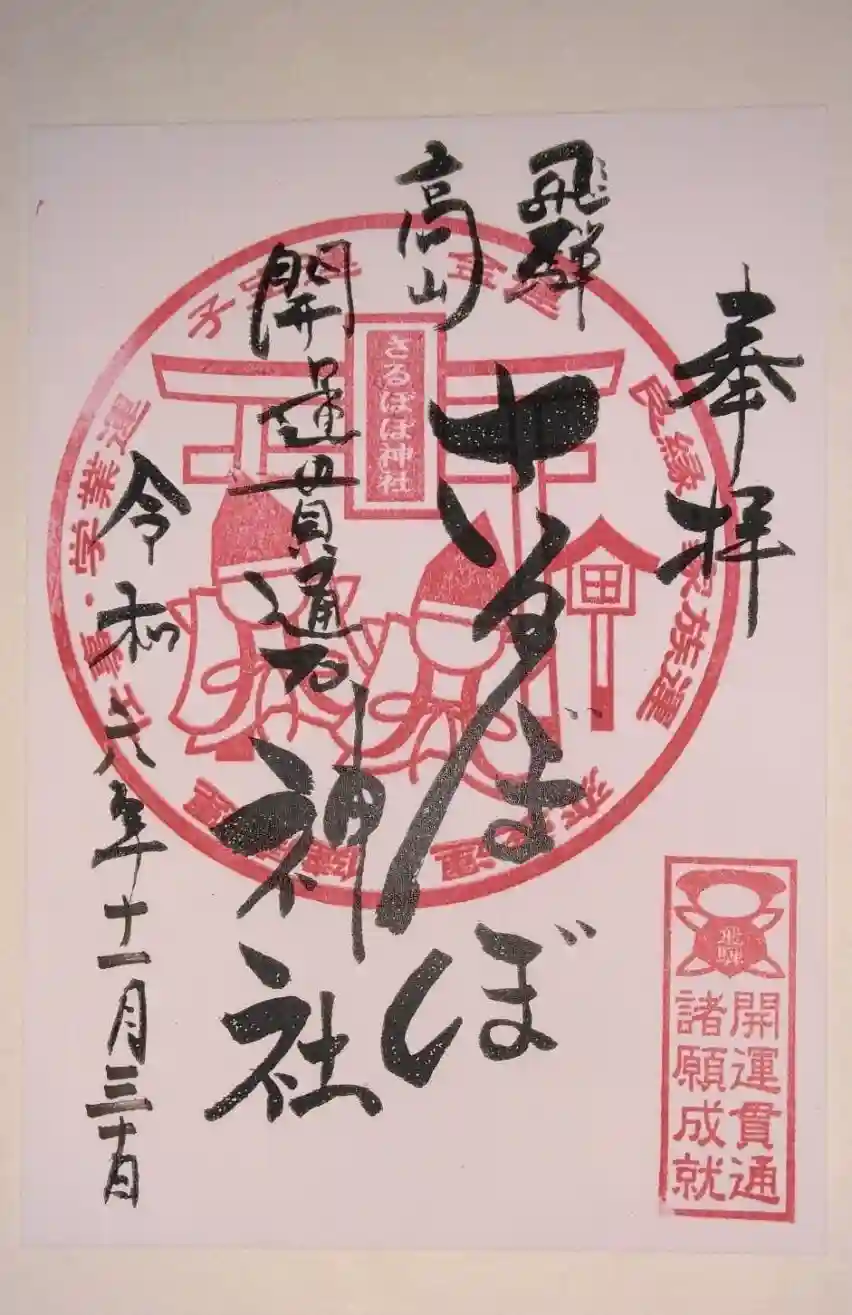 奉拝
飛騨
高山
さるぼぼ
神社
開運貫通石
令和六年十一月三十日
さるぼぼ神社
金運
良縁
家族運
学業運
開運貫通
諸願成就
飛騨